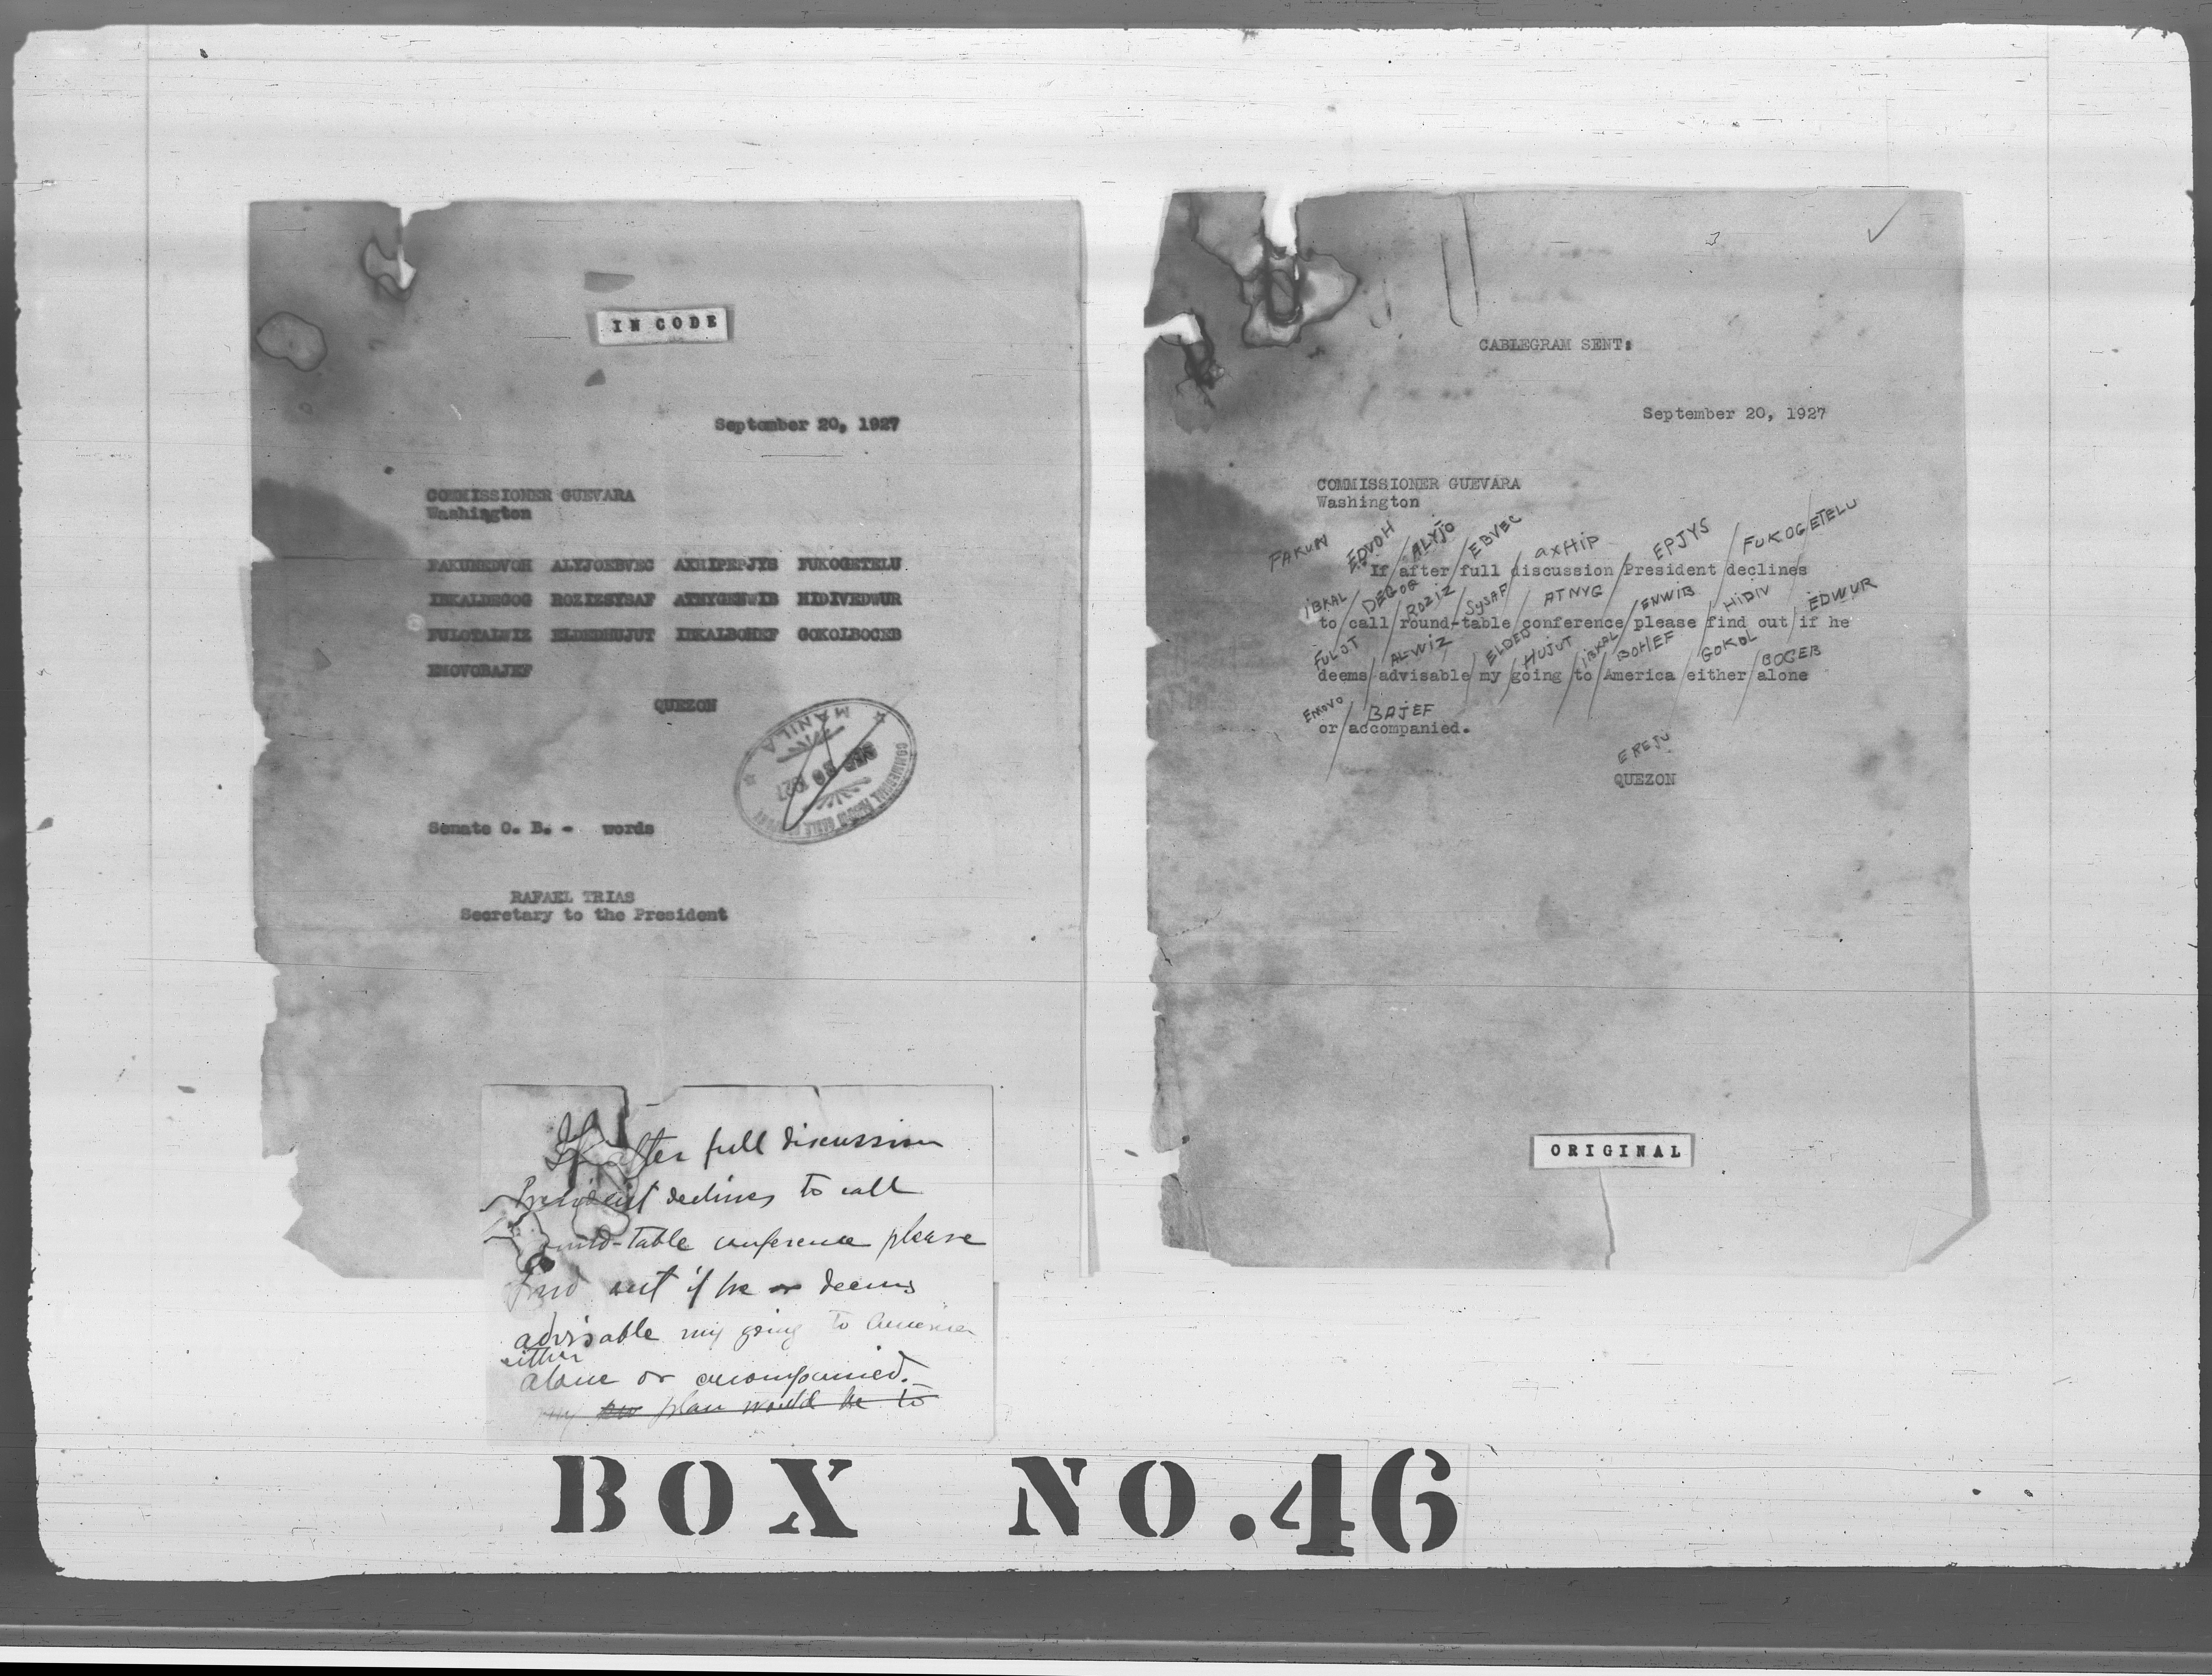 IN CODE
September 20, 1927
COMMISSIONER GUEVARA
Washington
FAKUNEDVOH ALYJOEBVEC AXHIPEPJYS FUKOGETELU
IBKALDEGOG ROZIZSYSAF ATNYGENWIB HIDIVEDWUR
FULOTALWIZ ELDEDHUJUT IBKALBOHEF GOKOLBOCEB
EMOVOBAJEF
QUEZON
MANILA
SEP 20 1927
Senate O. B. - words
RAFAEL TRIAS
Secretary to the President
If after full discussion
President declines to call
round-table conference please
find out if he deems
advisable my going to America
either
alone or accompanied.
my plan would be to
CABLEGRAM SENT:
September 20, 1927
COMMISSIONER GUEVARA
Washington
FAKUN EDVOH ALYJO EBVEC AXHIP EPJYS FUKOGETELU
If/after/full/discussion/President/declines
IBKAL DEGOG ROZIZ SYSAF ATNYG ENWIB HIDIV EDWUR
to/call/round-table/conference/please/find out/if he
FULOT ALWIZ ELDED HUJUT IBKAL BOHEF GOKOL BOCEB
deems/advisable/my/going/to/America/either/alone
EMOVO BAJEF
or/accompanied.
EREJU
QUEZON
ORIGINAL
BOX NO.46